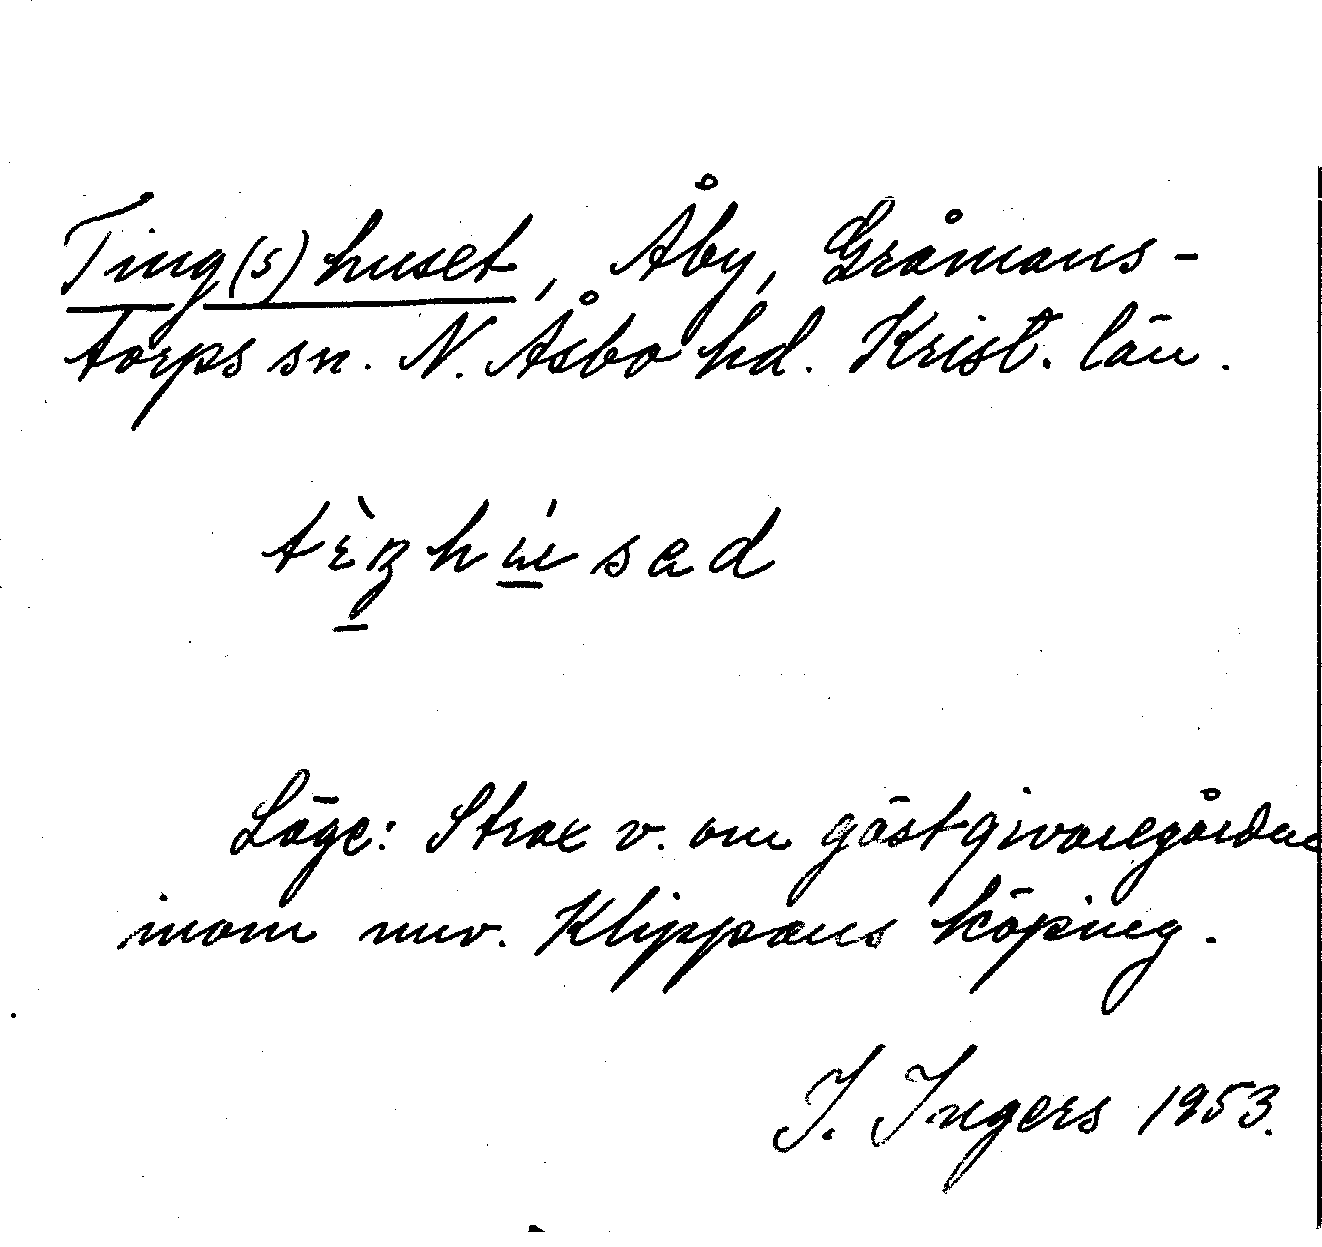 Ting(s)huset, Åby, Gråmans-
torps sn. N. Åsbo hd. Krist. län.
Läge: Strax v. om gästgivaregården
inom nuv. Klippans köping.
I. Ingers 1953.